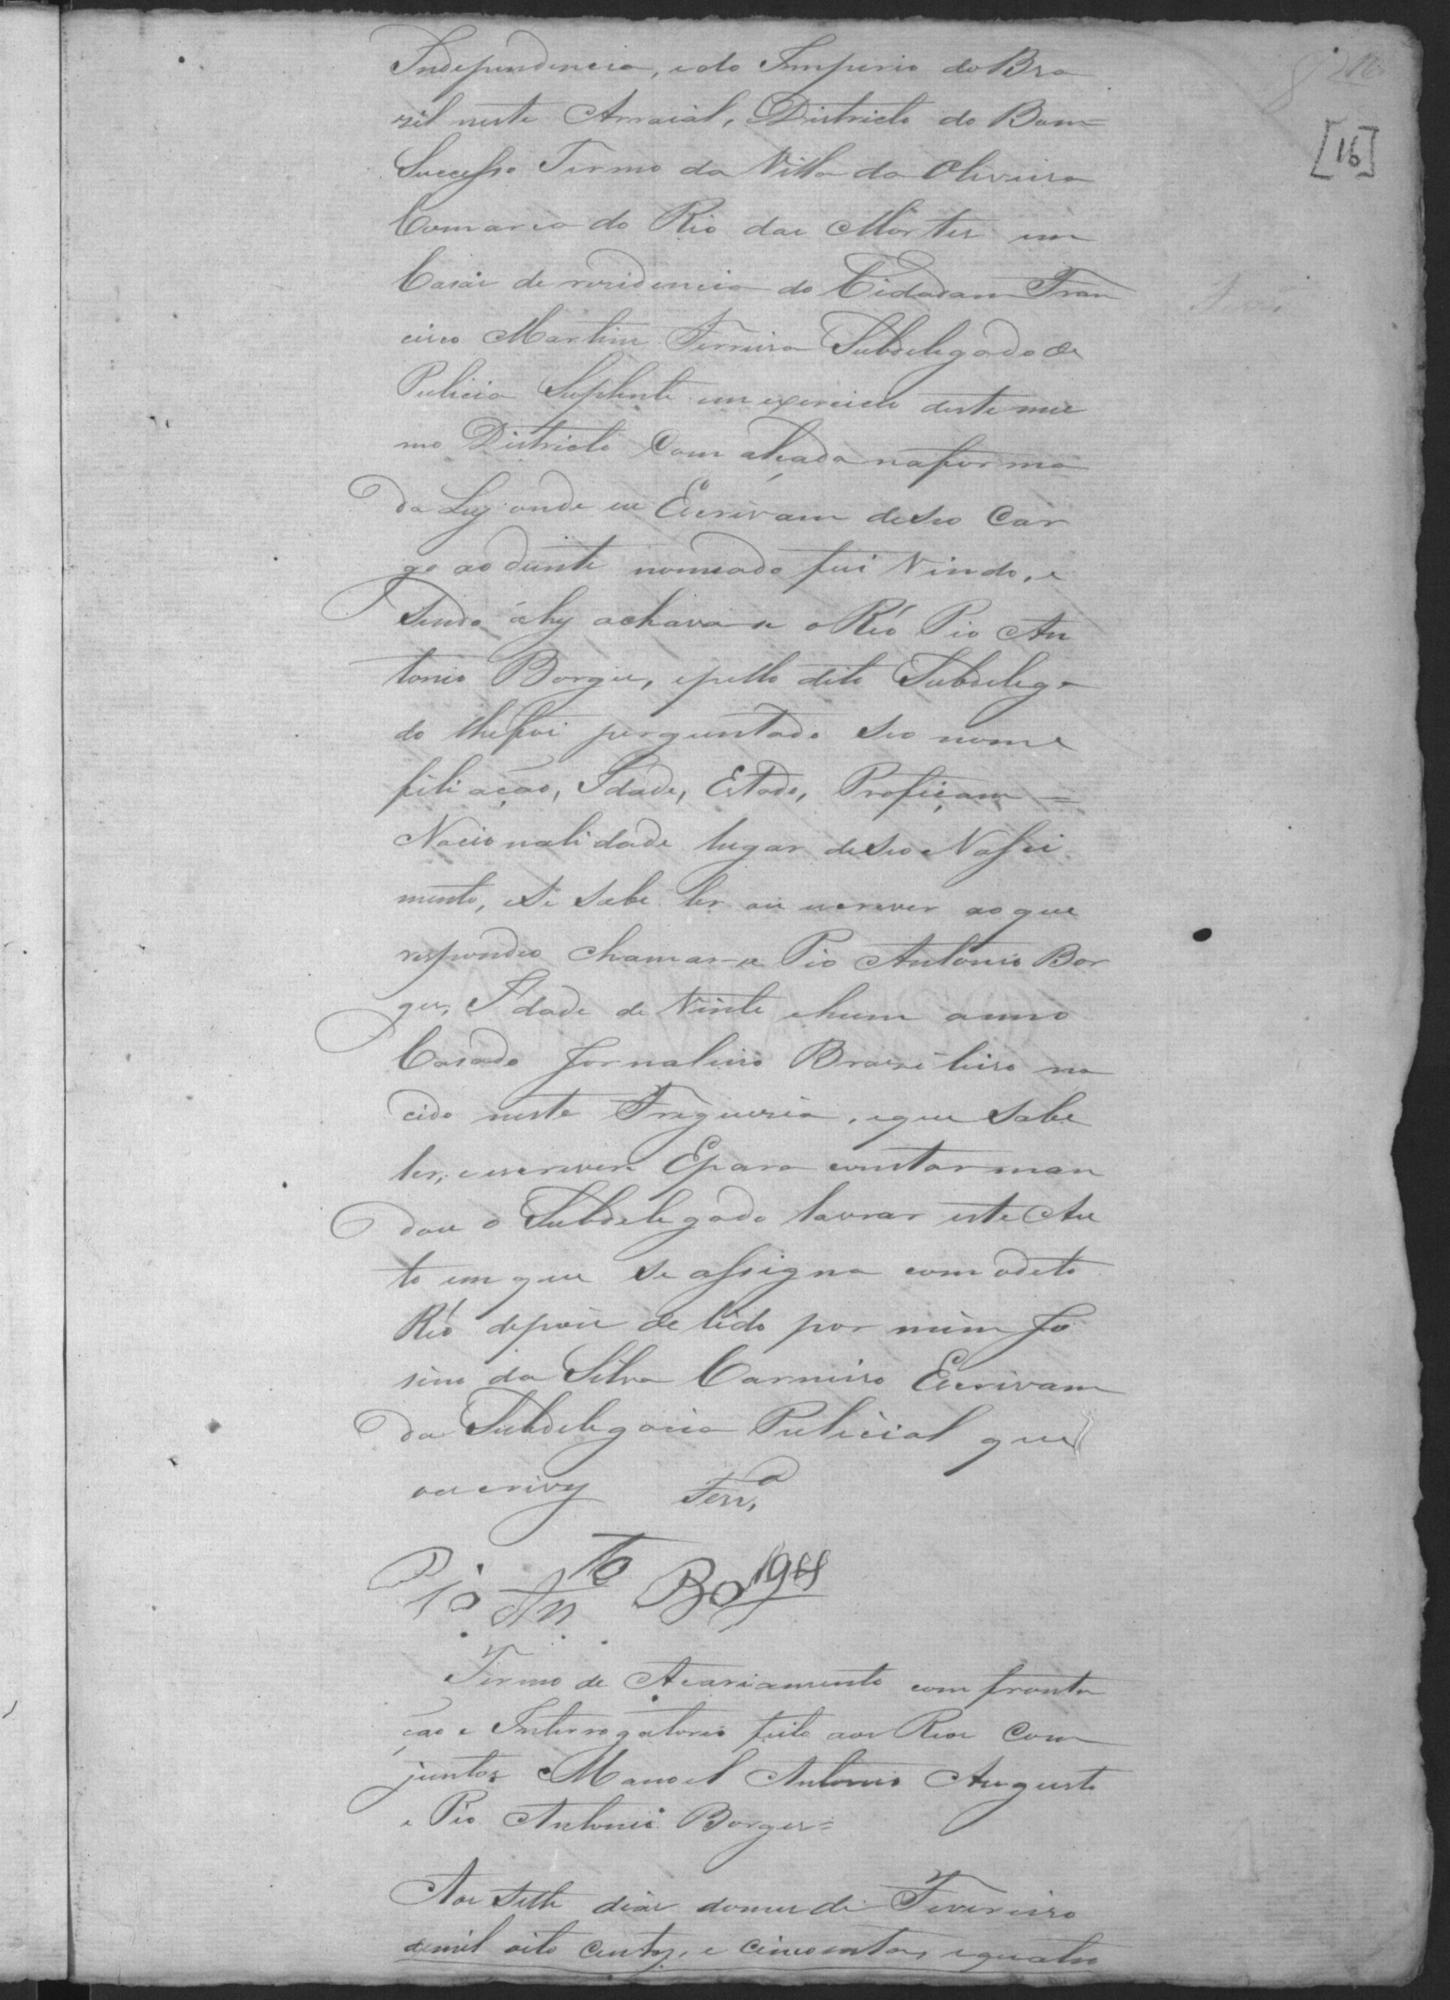 [16]
Independencia, e do Imperio do Bra
zil neste Arraial, Districto do Bom=
Successo Termo da Villa da Oliveira
Comarca do Rio das Mortes em
Casas de rezidencia do Cidadam Fran
cisco Martins Ferreira Subdelegado de
Pulicia Suplente em exercicio deste mes
mo Districto Com alçada na forma
da Ley onde eu Escrivam de seo Car
go ao diante nomeado fui Vindo, e
Sendo áhy achava se o Réo Pio An
tonio Borges, e pello dito Subdelega
do lhe foi perguntado seo nome
filiação, Idade, Estado, Profiçam =
Nacionalidade lugar de seo Nasci
mento, e Se Sabe ler ou escrever ao que
respondeo chamar-se Pio Antonio Bor
ges, Idade de Vinte e hum anno
Casado Jornaleiro Brazileiro na
cido neste Freguesia, e que Sabe
ler, e escrever E para constar man
dou o Subdelegado lavrar este Au
to em que Se assigna com o dito
Réo depois de lido por mim Jo
sino da Silva Carneiro Escrivam
da Subdelegacia Pulicial que
o escrivy Ferr.ª
Pio Anto Borges
Termo de Acariamento comfronta
ção e Interrogatorio feito aos Reos Com
juntos Manoel Antonio Augusto
e Pio Antonio Borges=
Aos Sette dias do mes de Fevereiro
de mil oito centos, e cincoenta, e quatro